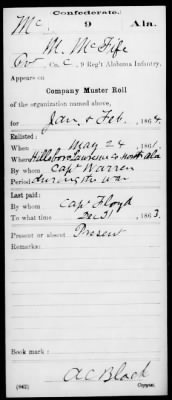 Confederate.
Mc 9 Ala.
M. McFife
Pvt, Co. C, 9 Reg't Alabama Infantry.
Appears on
Company Muster Roll
of the organization named above,
for Jan & Feb, 1864.
Enlisted:
When May 24, 1861.
Where Hillsboro Lawrence Co North Ala
By whom Capt Warren
Period during the war
Last paid:
By whom Capt Floyd
To what time Dec 31, 1863.
Present or absent Present
Remarks:
Book mark:
A C Black
(642) Copyist.